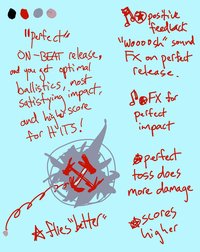 "perfect"
ON-BEAT release,
and you get optimal
ballistics, most
satisfying impact,
and higher score
for HITS!
flies "better"
positive
feedback
"Woooosh" sound
FX on perfect
release.
FX for
perfect
impact
perfect
toss does
more damage
scores
higher